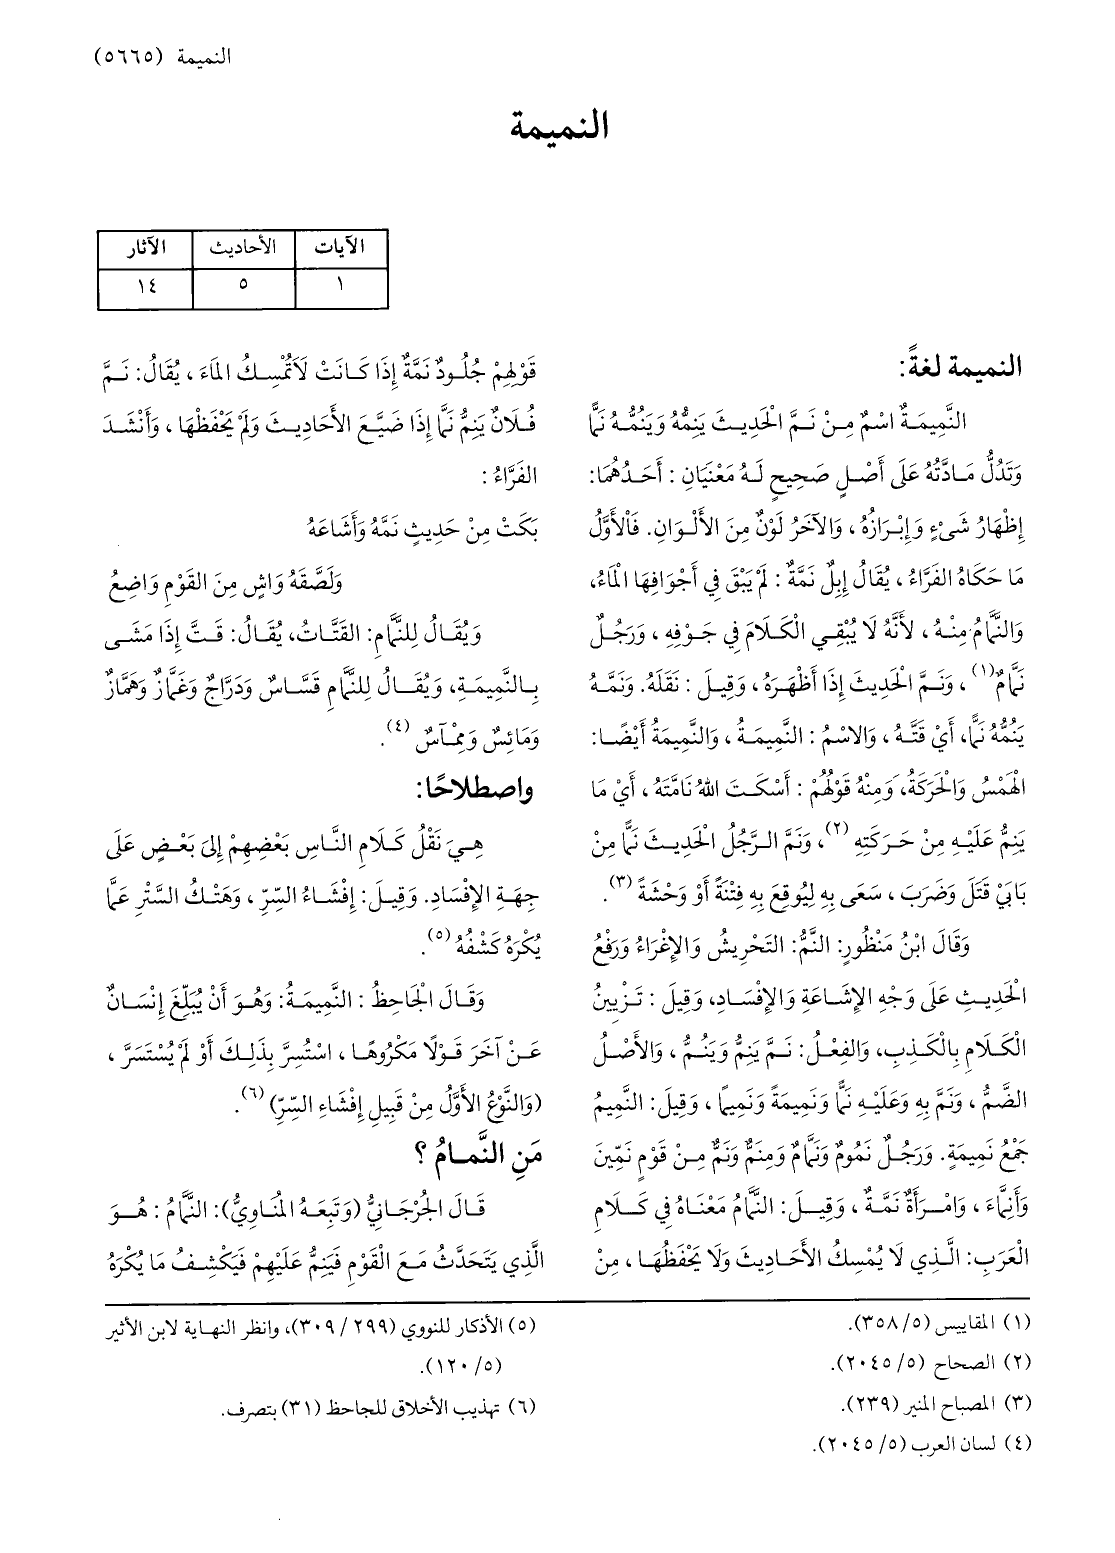 النميمة (٥٦٦٥)
النميمة
الآيات الأحاديث الآثار
١ ٥ ١٤
النميمة لغةً:
النَّمِيمَةُ اسْمٌ مِنْ نَمَّ الْحَدِيثَ يَنِمُّهُ وَيَنُمُّهُ نَمًّا
وَتَدُلُّ مَادَّتُهُ عَلَى أَصْلٍ صَحِيحٍ لَهُ مَعْنَيَانِ : أَحَدُهُمَا:
إِظْهَارُ شَيْءٍ وَإِبْرَازُهُ ، وَالآخَرُ لَوْنٌ مِنَ الأَلْوَانِ. فَالْأَوَّلُ
مَا حَكَاهُ الفَرَّاءُ ، يُقَالُ إِبِلٌ نَمَّةٌ : لَمْ يَبْقَ فِي أَجْوَافِهَا الْمَاءُ،
وَالنَّمَّامُ مِنْهُ ، لأَنَّهُ لَا يُبْقِي الْكَلَامَ فِي جَوْفِهِ ، وَرَجُلٌ
نَمَّامٌ(١) ، وَنَمَّ الْحَدِيثَ إِذَا أَظْهَرَهُ ، وَقِيلَ : نَقَلَهُ. وَنَمَّهُ
يَنُمُّهُ نَمًّا، أَيْ قَتَّهُ ، وَالاسْمُ : النَّمِيمَةُ ، وَالنَّمِيمَةُ أَيْضًا:
الْهَمْسُ وَالْحَرَكَةُ، وَمِنْهُ قَوْلُهُمْ : أَسْكَتَ اللهُ نَامَّتَهُ ، أَيْ مَا
يَنِمُّ عَلَيْهِ مِنْ حَرَكَتِهِ (٢)، وَنَمَّ الرَّجُلُ الْحَدِيثَ نَمًّا مِنْ
بَابَيْ قَتَلَ وَضَرَبَ ، سَعَى بِهِ لِيُوقِعَ بِهِ فِتْنَةً أَوْ وَحْشَةً (٣).
وَقَالَ ابْنُ مَنْظُورٍ: النَّمُّ: التَحْرِيشُ وَالإِغْرَاءُ وَرَفْعُ
الْحَدِيثِ عَلَى وَجْهِ الإِشَاعَةِ وَالإِفْسَادِ، وَقِيلَ : تَزْيِينُ
الْكَلَامِ بِالْكَذِبِ، وَالفِعْلُ: نَمَّ يَنِمُّ وَيَنُمُّ ، وَالأَصْلُ
الضَّمُّ ، وَنَمَّ بِهِ وَعَلَيْهِ نَمًّا وَنَمِيمَةً وَنَمِيمًا ، وَقِيلَ: النَّمِيمُ
جَمْعُ نَمِيمَةٍ. وَرَجُلٌ نَمُومٌ وَنَمَّامٌ وَمِنَمٌّ وَنَمٌّ مِنْ قَوْمٍ نَمِّينَ
وَأَنِمَّاءَ ، وَامْرَأَةٌ نَمَّةٌ ، وَقِيلَ: النَّمَّامُ مَعْنَاهُ فِي كَلَامِ
الْعَرَبِ: الَّذِي لَا يُمْسِكُ الأَحَادِيثَ وَلَا يَحْفَظُهَا ، مِنْ
قَوْلِهِمْ جُلُودٌ نَمَّةٌ إِذَا كَانَتْ لَا تُمْسِكُ المَاءَ ، يُقَالُ: نَمَّ
فُلَانٌ يَنِمُّ نَمًّا إِذَا ضَيَّعَ الأَحَادِيثَ وَلَمْ يَحْفَظْهَا ، وَأَنْشَدَ
الفَرَّاءُ :
بَكَتْ مِنْ حَدِيثٍ نَمَّهُ وَأَشَاعَهُ
وَلَصَّقَهُ وَاشٍ مِنَ القَوْمِ وَاضِعُ
وَيُقَالُ لِلنَّمَّامِ: القَتَّاتُ، يُقَالُ: قَتَّ إِذَا مَشَى
بِالنَّمِيمَةِ، وَيُقَالُ لِلنَّمَّامِ قَسَّاسٌ وَدَرَّاجٌ وَغَمَّازٌ وَهَمَّازٌ
وَمَائِسٌ وَمِمْآسٌ (٤).
واصطلاحًا:
هِيَ نَقْلُ كَلَامِ النَّاسِ بَعْضِهِمْ إِلَى بَعْضٍ عَلَى
جِهَةِ الإِفْسَادِ. وَقِيلَ: إِفْشَاءُ السِّرِّ ، وَهَتْكُ السَّتْرِ عَمَّا
يُكْرَهُ كَشْفُهُ (٥).
وَقَالَ الْجَاحِظُ : النَّمِيمَةُ: وَهُوَ أَنْ يُبَلِّغَ إِنْسَانٌ
عَنْ آخَرَ قَوْلًا مَكْرُوهًا ، اسْتُسِرَّ بِذَلِكَ أَوْ لَمْ يُسْتَسَرَّ ،
(وَالنَّوْعُ الأَوَّلُ مِنْ قَبِيلِ إِفْشَاءِ السِّرِّ) (٦).
مَنِ النَّمامُ ؟
قَالَ الْجُرْجَانِيُّ (وَتَبِعَهُ الْمُنَاوِيُّ): النَّمَّامُ : هُوَ
الَّذِي يَتَحَدَّثُ مَعَ القَوْمِ فَيَنِمُّ عَلَيْهِمْ فَيَكْشِفُ مَا يُكْرَهُ
(١) المقاييس (٥/ ٣٥٨).
(٢) الصحاح (٥/ ٢٠٤٥).
(٣) المصباح المنير (٢٣٩).
(٤) لسان العرب (٥/ ٢٠٤٥).
(٥) الأذكار للنووي (٢٩٩ / ٣٠٩)، وانظر النهاية لابن الأثير
(٥/ ١٢٠).
(٦) تهذيب الأخلاق للجاحظ (٣١) بتصرف.